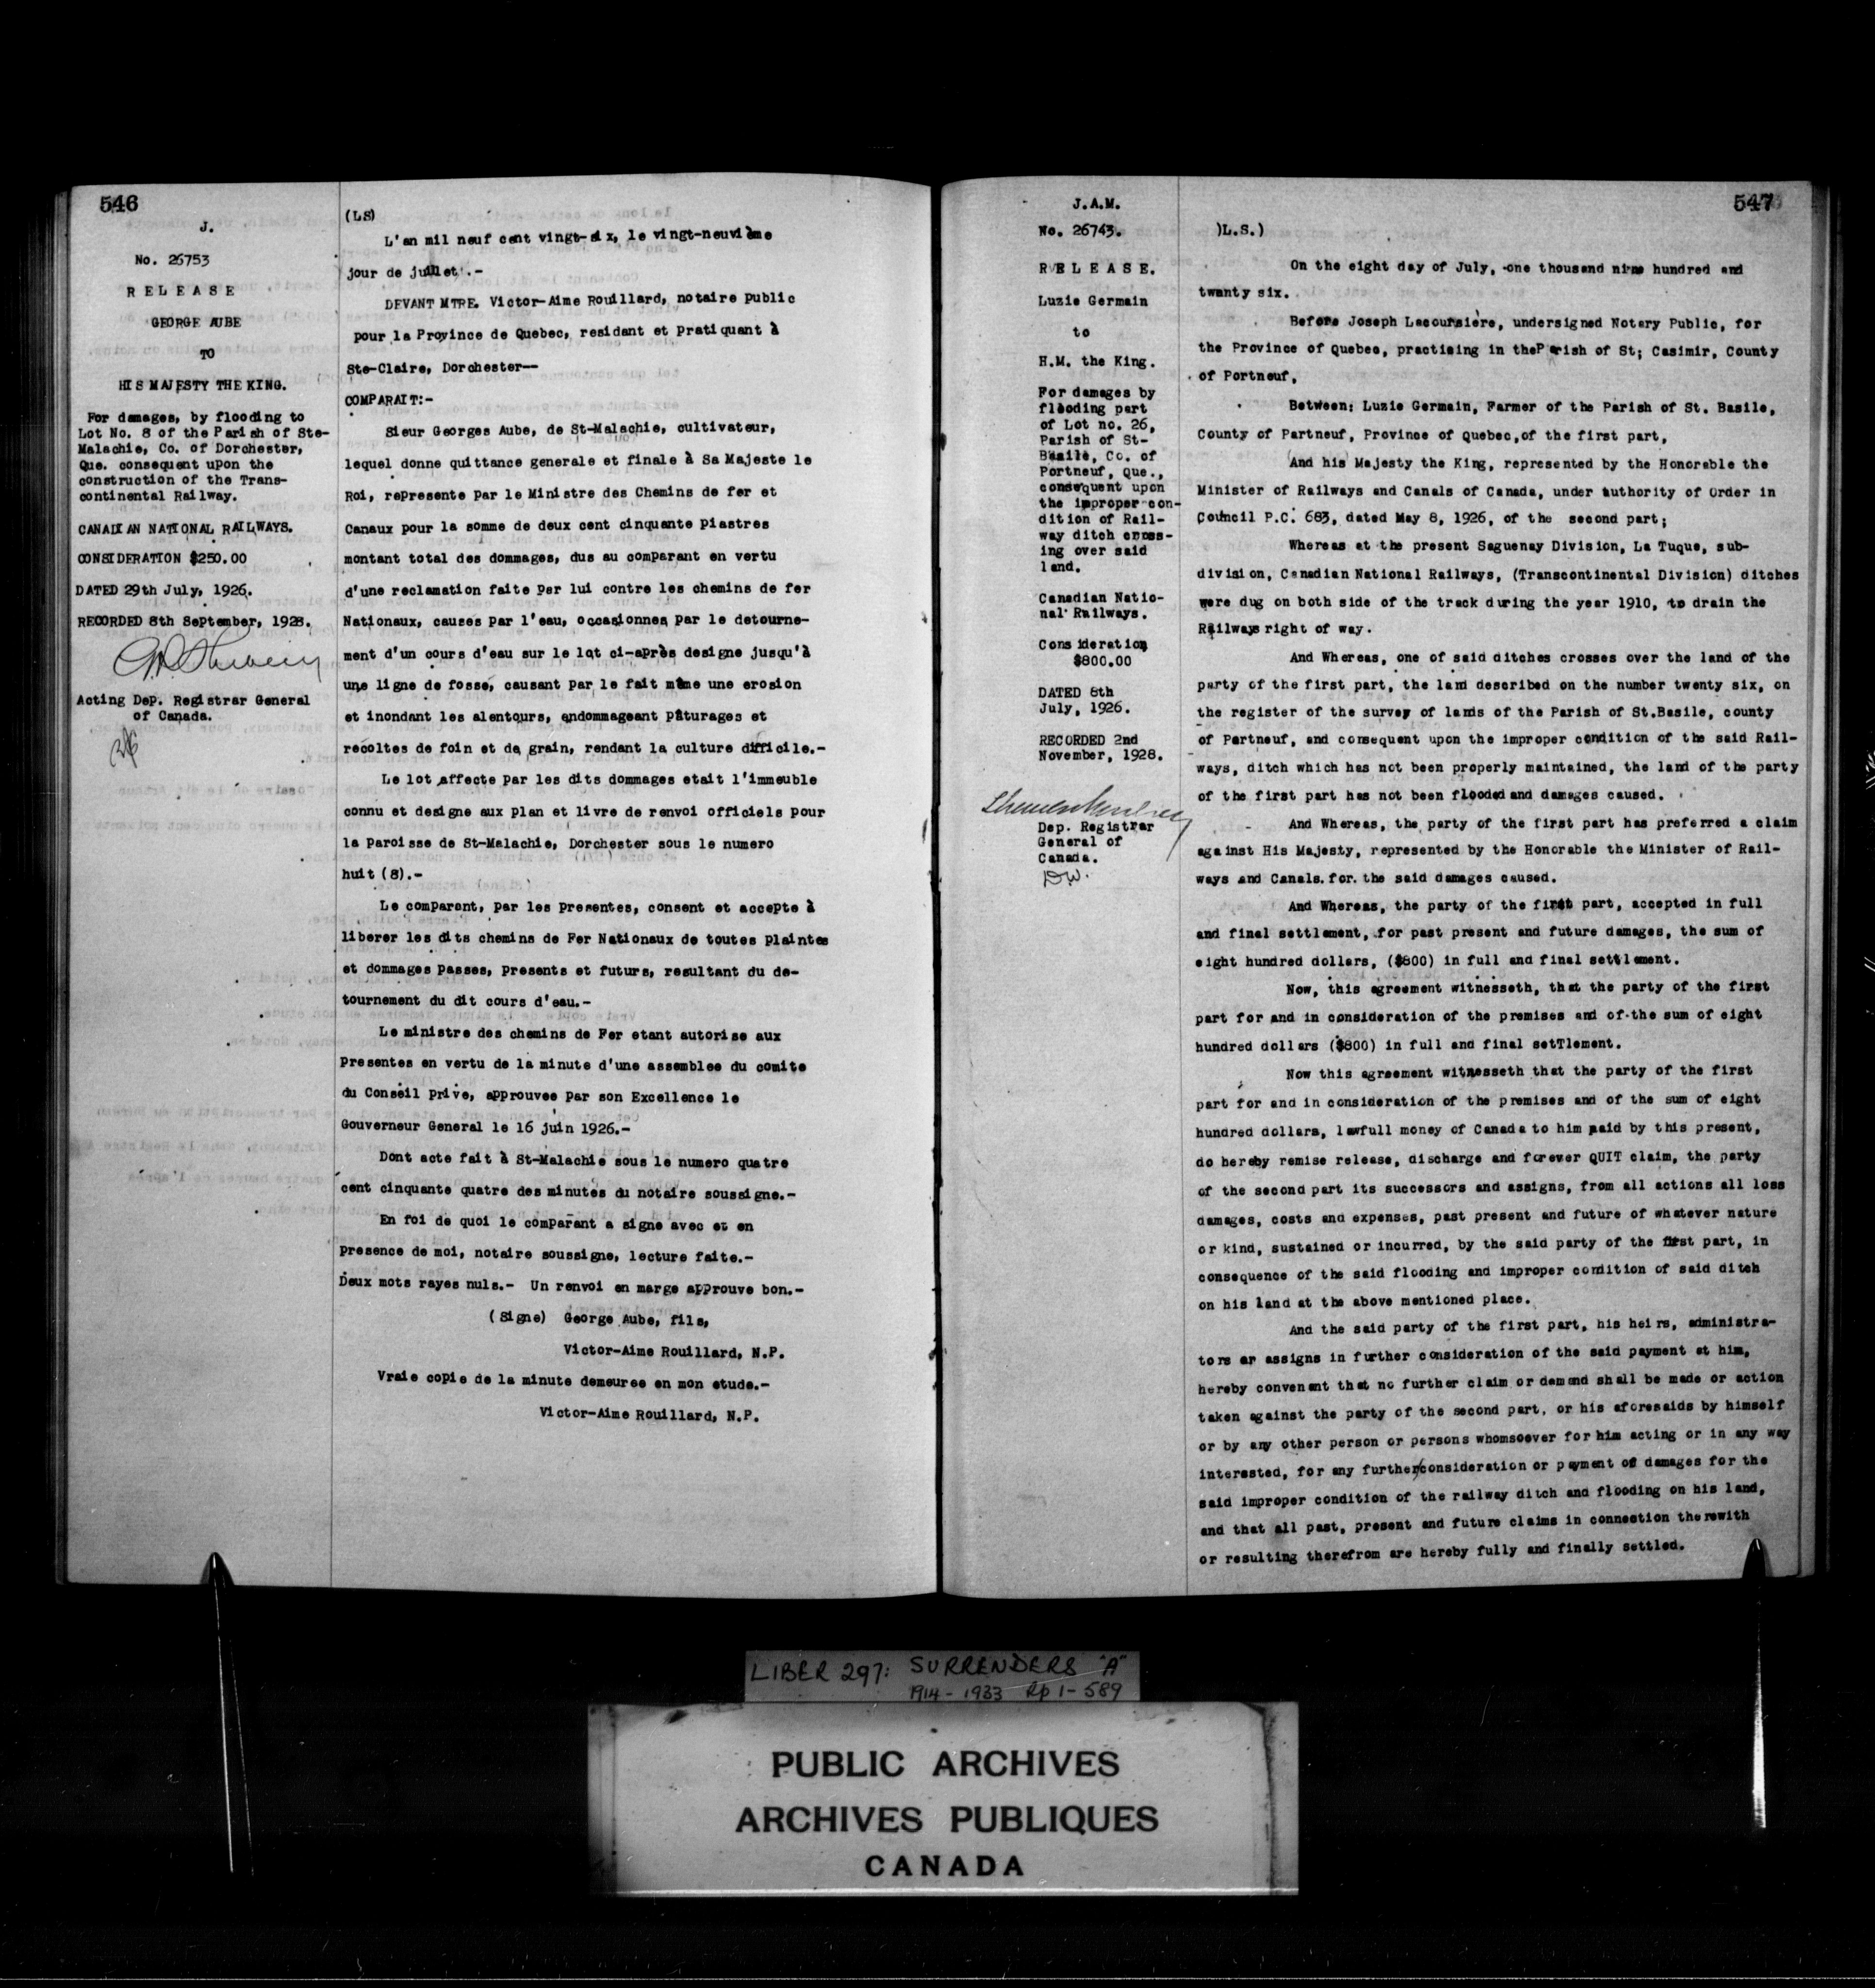 546
J.
No. 26753
R E L E A S E
GEORGE AUBE
TO
HIS MAJESTY THE KING.
For damages, by flooding to
Lot No. 8 of the Parish of Ste-
Malachie, Co. of Dorchester,
Que. consequent upon the
construction of the Trans-
continental Railway.
CANADIAN NATIONAL RAILWAYS.
CONSIDERATION $250.00
DATED 29th July, 1926.
RECORDED 8th September, 1928.
Acting Dep. Registrar General
of Canada.
(LS)
L'an mil neuf cent vingt-six, le vingt-neuvième
jour de juillet.-
DEVANT MTRE. Victor-Aime Rouillard, notaire Public
pour la Province de Quebec, residant et pratiquant à
Ste-Claire, Dorchester--
COMPARAIT:-
Sieur Georges Aube, de St-Malachie, cultivateur,
lequel donne quittance generale et finale à Sa Majeste le
Roi, represente par le Ministre des Chemins de fer et
Canaux pour la somme de deux cent cinquante piastres
montant total des dommages, dus au comparant en vertu
d'une reclamation faite par lui contre les chemins de fer
Nationaux, causes par l'eau, occasionnes par le detourne-
ment d'un cours d'eau sur le lot ci-après designe jusqu'à
une ligne de fosse, causant par le fait même une erosion
et inondant les alentours, endommageant pâturages et
recoltes de foin et de grain, rendant la culture difficile.-
Le lot affecte par les dits dommages etait l'immeuble
connu et designe aux plan et livre de renvoi officiels pour
la Paroisse de St-Malachie, Dorchester sous le numero
huit (8).-
Le comparant, par les presentes, consent et accepte à
liberer les dits chemins de Fer Nationaux de toutes plaintes
et dommages passes, presents et futurs, resultant du de-
tournement du dit cours d'eau.-
Le ministre des chemins de Fer etant autorise aux
presentes en vertu de la minute d'une assemblee du comite
du Conseil prive, approuvee par son Excellence le
Gouverneur General le 16 juin 1926.-
Dont acte fait à St-Malachie sous le numero quatre
cent cinquante quatre des minutes du notaire soussigne.-
En foi de quoi le comparant a signe avec et en
presence de moi, notaire soussigne, lecture faite.-
Deux mots rayes nuls.- Un renvoi en marge approuve bon.-
(Signe) George Aube, fils,
Victor-Aime Rouillard, N.P.
Vraie copie de la minute demeuree en mon etude.-
Victor-Aime Rouillard, N.P.
547
J.A.M.
No. 26743.
R E L E A S E.
Luzie Germain
to
H.M. the King.
For damages by
flooding part
of Lot no. 26,
Parish of St-
Basile, Co. of
Portneuf, Que.,
consequent upon
the improper con-
dition of Rail-
way ditch cross-
ing over said
land.
Canadian Natio-
nal Railways.
Consideration
$800.00
DATED 8th
July, 1926.
RECORDED 2nd
November, 1928.
Dep. Registrar
General of
Canada.
)L.S.)
On the eight day of July, one thousand nine hundred and
twenty six.
Before Joseph Lacoursière, undersigned Notary Public, for
the Province of Quebec, practicing in theParish of St; Casimir, County
of Portneuf,
Between: Luzie Germain, Farmer of the Parish of St. Basile,
County of Partneuf, Province of Quebec,of the first part,
And his Majesty the King, represented by the Honorable the
Minister of Railways and Canals of Canada, under authority of Order in
Council P.C. 683, dated May 8, 1926, of the second part;
Whereas at the present Saguenay Division, La Tuque, sub-
division, Canadian National Railways, (Transcontinental Division) ditches
were dug on both side of the track during the year 1910, to drain the
Railways right of way.
And Whereas, one of said ditches crosses over the land of the
party of the first part, the land described on the number twenty six, on
the register of the survey of lands of the Parish of St.Basile, county
of Partneuf, and consequent upon the improper condition of the said Rail-
ways, ditch which has not been properly maintained, the land of the party
of the first part has not been flooded and damages caused.
And Whereas, the party of the first part has preferred a claim
against His Majesty, represented by the Honorable the Minister of Rail-
ways and Canals.for. the said damages caused.
And Whereas, the party of the first part, accepted in full
and final settlement, for past present and future damages, the sum of
eight hundred dollars, ($800) in full and final settlement.
Now, this agreement witnesseth, that the party of the first
part for and in consideration of the premises and of the sum of eight
hundred dollars ($800) in full and final setTlement.
Now this agreement witnesseth that the party of the first
part for and in consideration of the premises and of the sum of eight
hundred dollars, lawfull money of Canada to him paid by this present,
do hereby remise release, discharge and forever QUIT claim, the party
of the second part its successors and assigns, from all actions all loss
damages, costs and expenses, past present and future of whatever nature
or kind, sustained or incurred, by the said party of the first part, in
consequence of the said flooding and improper condition of said ditch
on his land at the above mentioned place.
And the said party of the first part, his heirs, administra-
tors or assigns in further consideration of the said payment et him,
hereby convenant that no further claim or demand shall be made or action
taken against the party of the second part, or his aforesaids by himself
or by any other person or persons whomsoever for him acting or in any way
interested, for any further/consideration or payment of damages for the
said improper condition of the railway ditch and flooding on his land,
and that all past, present and future claims in connection therewith
or resulting therefrom are hereby fully and finally settled.
LIBER 297: SURRENDERS "A"
1914 - 1933 Rp 1 - 589
PUBLIC ARCHIVES
ARCHIVES PUBLIQUES
CANADA